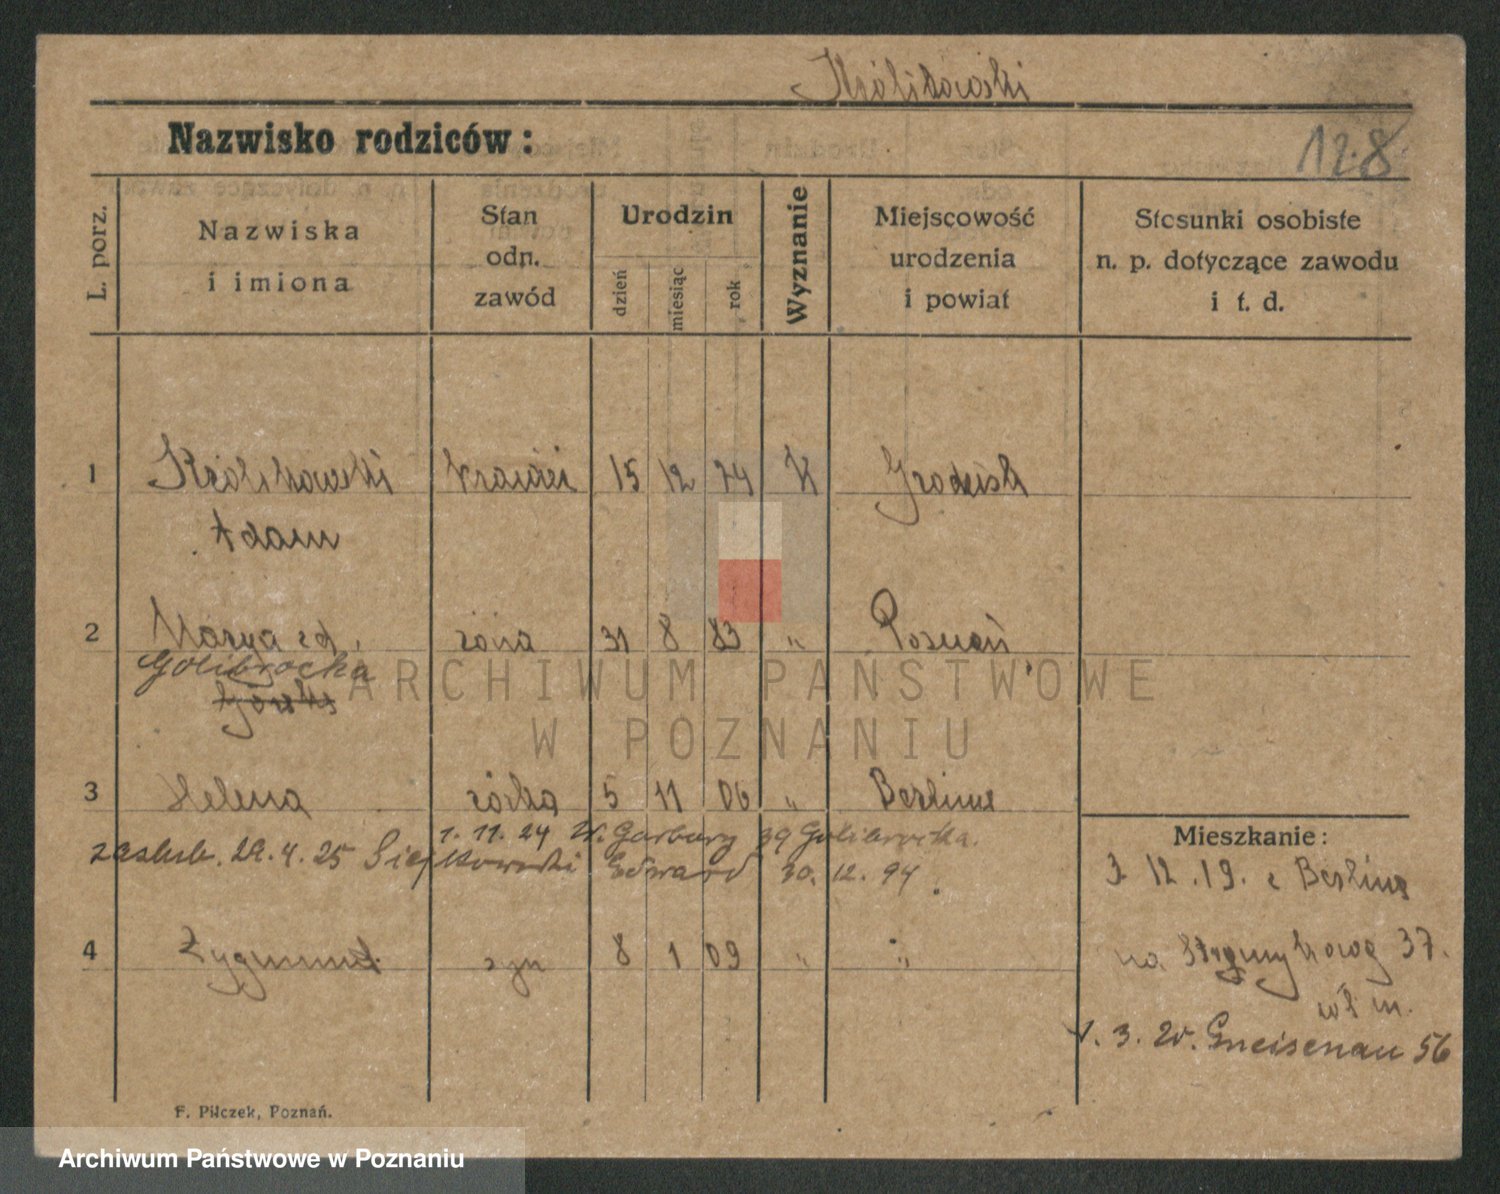 Królikowski
Nazwisko rodziców:
128
L. porz.
Nazwiska
i imiona
Stan
odn.
zawód
Urodzin
dzień
miesiąc
rok
Wyznanie
Miejscowość
urodzenia
i powiat
Stosunki osobiste
n. p. dotyczące zawodu
i t. d.
1 Królikowski krawiec 15 12 74 K Grodzisk
Adam
2 Marya żona 31 8 83 " Poznań
Golibrocka
Górska
3 Helena córka 5 11 06 " Berlinie
1. 11. 24 W. Garbary 39 Golibrocka.
zaślub. 29. 4. 25 Edward 30. 12. 94.
Mieszkanie:
12. 19. z Berlina
4 Zygmunt syn 8 1 09 " "
na 37.
3. 20. Gneisenau 56
F. Pilczek, Poznań.
ARCHIWUM PAŃSTWOWE
W POZNANIU
Archiwum Państwowe w Poznaniu